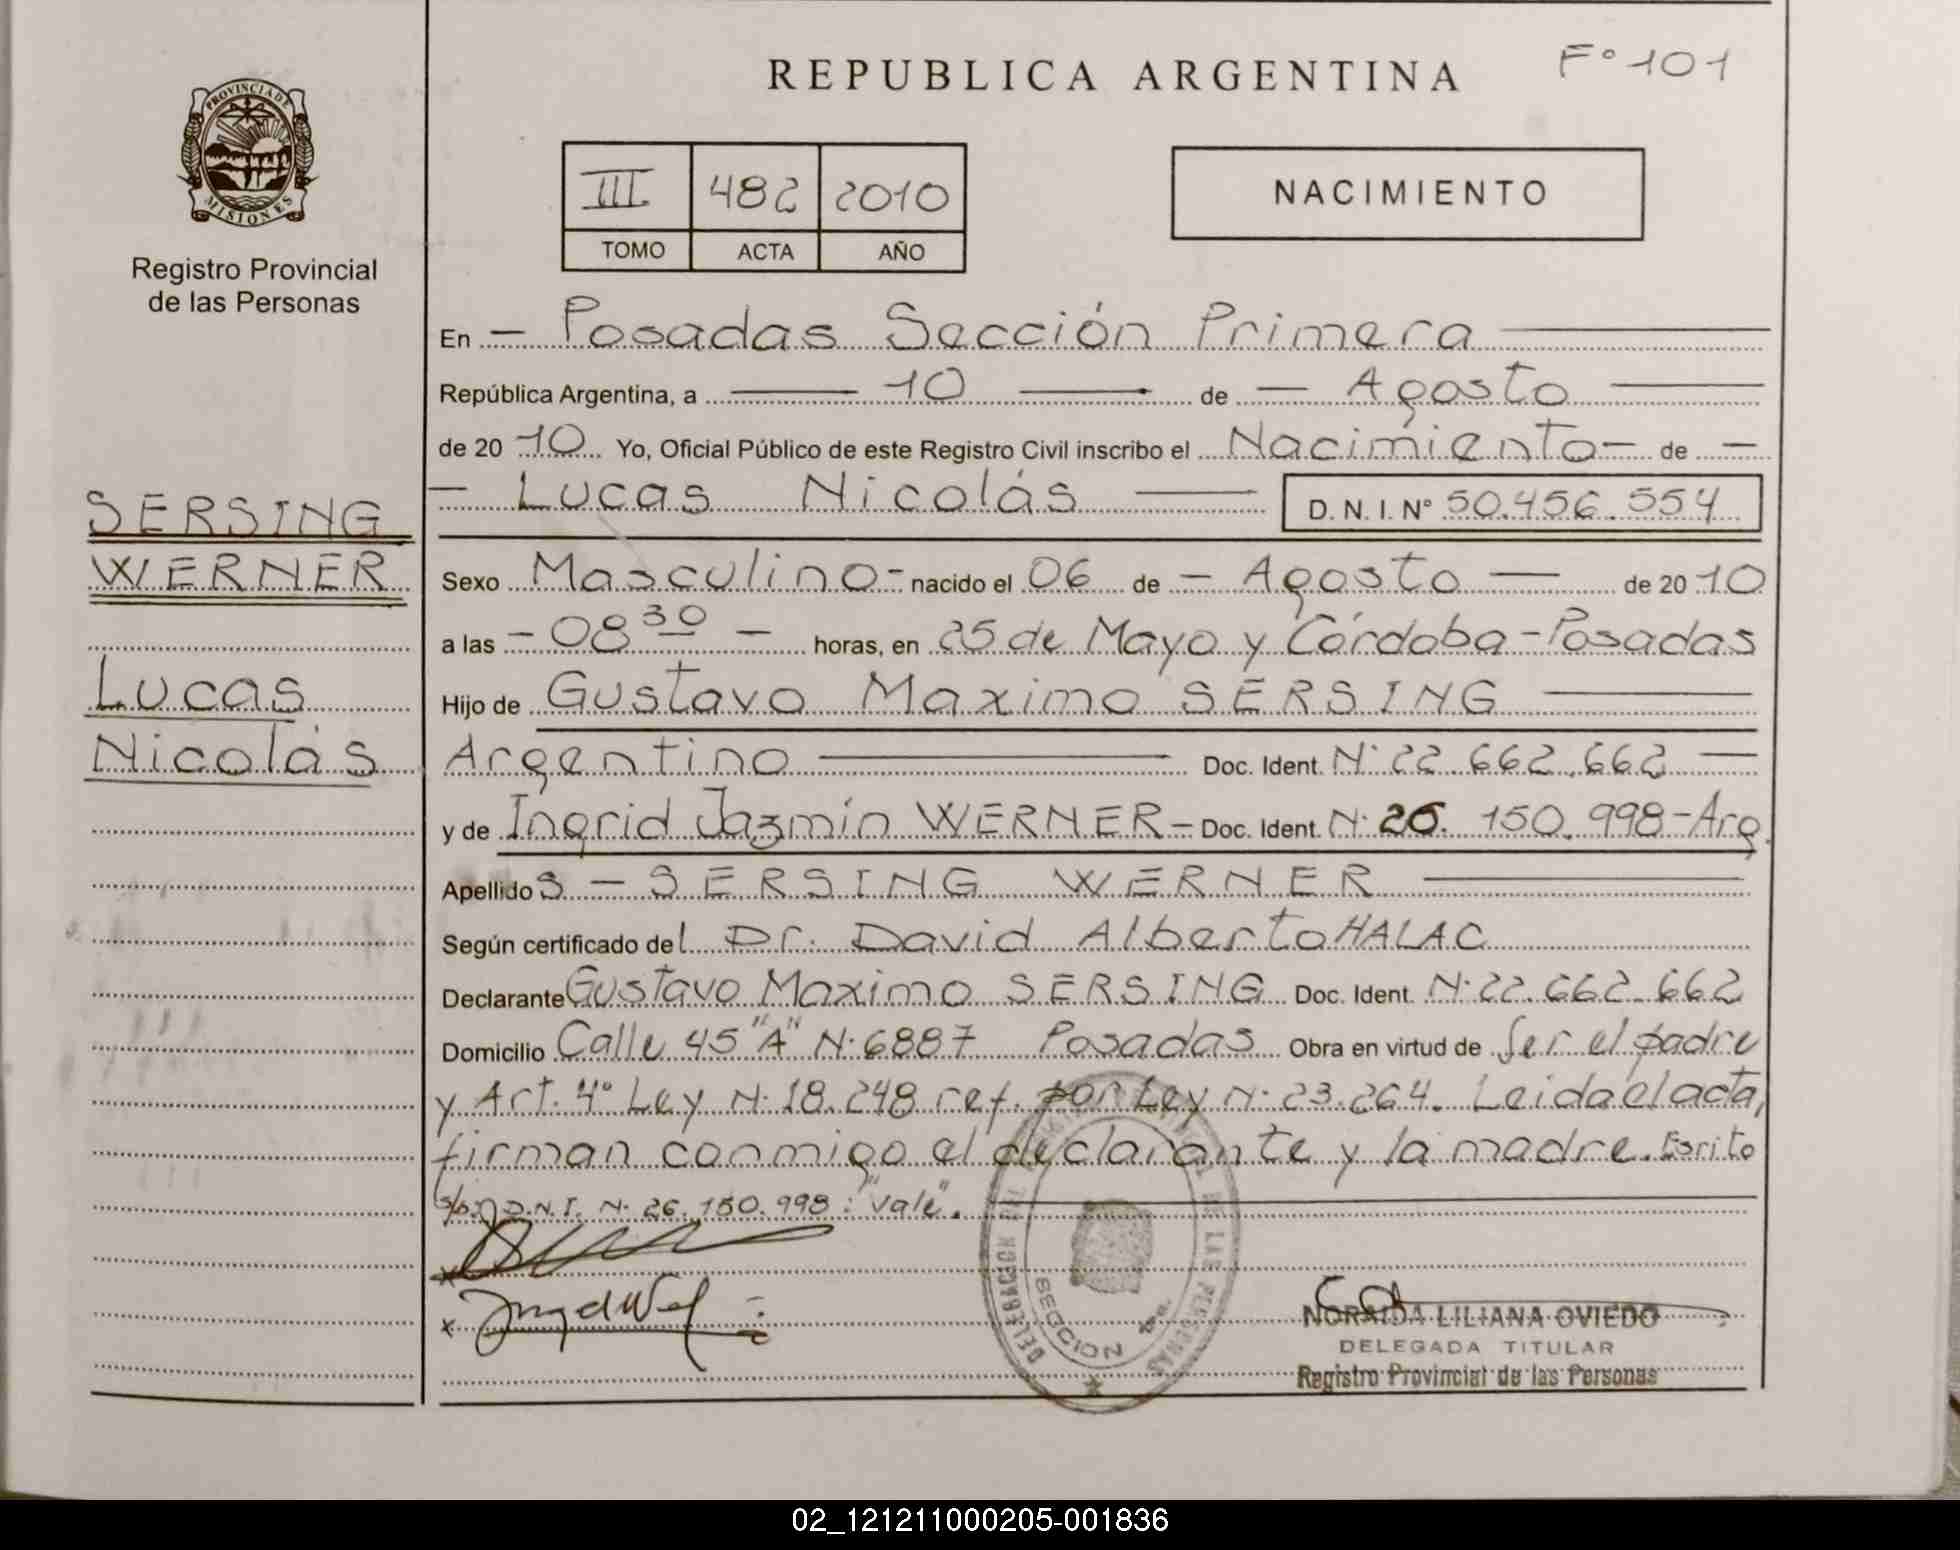 REPUBLICA ARGENTINA
Fº 101
PROVINCIA DE MISIONES
Registro Provincial
de las Personas
III 482 2010
TOMO ACTA AÑO
NACIMIENTO
SERSING
WERNER
Lucas
Nicolás
En - Posadas Sección Primera
República Argentina, a 10 de - Agosto
de 20 10 Yo, Oficial Público de este Registro Civil inscribo el Nacimiento - de -
- Lucas Nicolás D. N. I. Nº 50.456.554
Sexo Masculino - nacido el 06 de - Agosto - de 20 10
a las - 08 30 - horas, en 25 de Mayo y Córdoba - Posadas
Hijo de Gustavo Maximo SERSING
Argentino Doc. Ident. N· 22.662.662
y de Ingrid Jazmín WERNER - Doc. Ident. N· 26.150.998 - Arg.
Apellidos - SERSING WERNER
Según certificado del Dr. David Alberto HALAC
Declarante Gustavo Maximo SERSING Doc. Ident. N· 22.662.662
Domicilio Calle 45 "A" N· 6887 Posadas Obra en virtud de Ser el padre
y Art. 4º Ley N· 18.248 ref. por Ley N· 23.264. Leida el acta,
firman conmigo el declarante y la madre. Esrito
D.N.I. N· 26.150.998: "vale".
DELEGACION DE LAS PERSONAS
SECCION 1ra.
NORAIDA LILIANA OVIEDO
DELEGADA TITULAR
Registro Provincial de las Personas
02_121211000205-001836